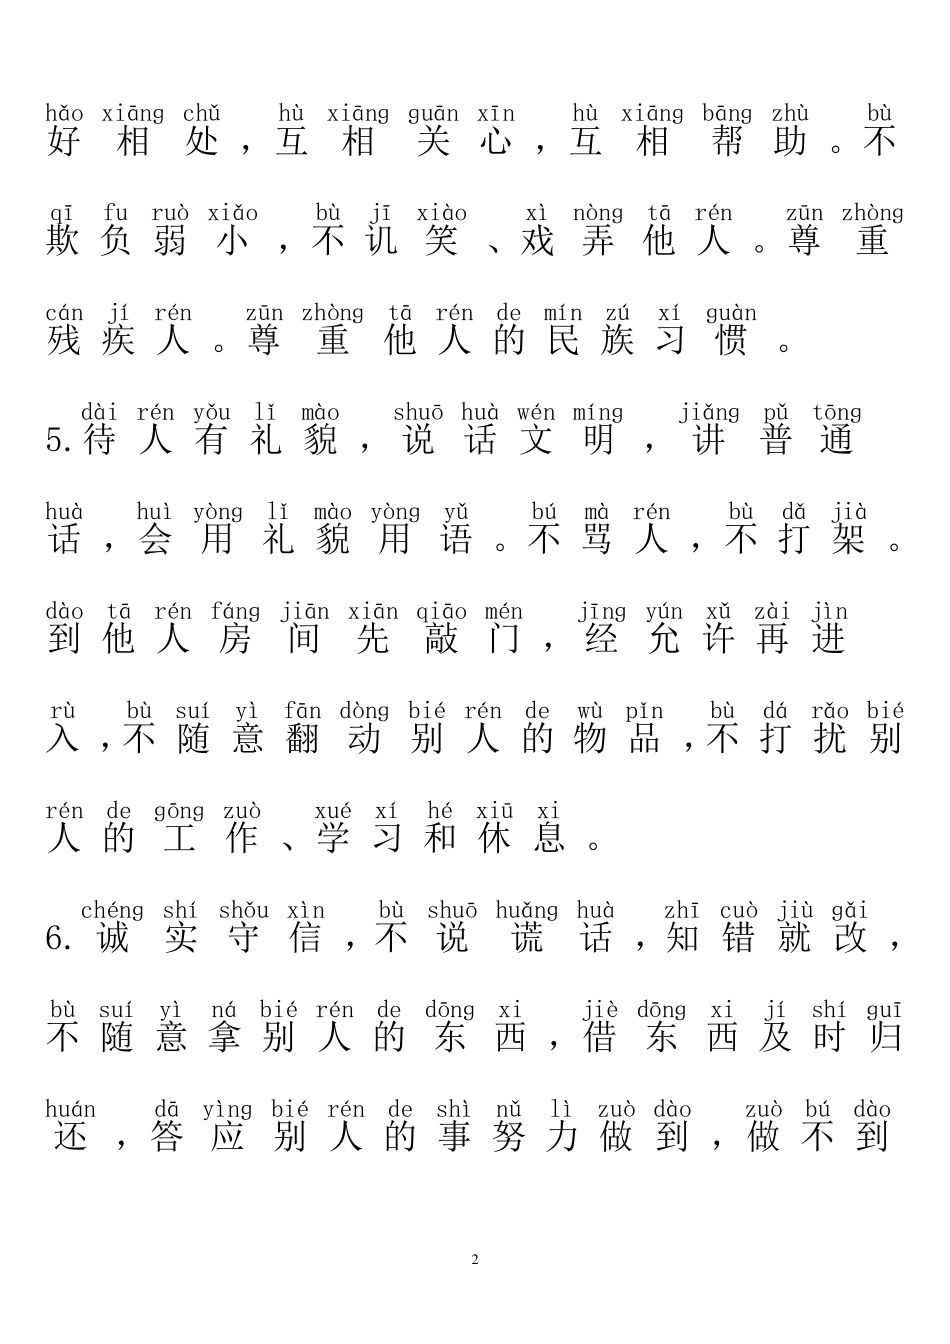 hǎo xiāng chǔ hù xiāng guān xīn hù xiāng bāng zhù bù
好相处，互相关心，互相帮助。不
qī fu ruò xiǎo bù jī xiào xì nòng tā rén zūn zhòng
欺负弱小，不讥笑、戏弄他人。尊重
cán jí rén zūn zhòng tā rén de mín zú xí guàn
残疾人。尊重他人的民族习惯。
dài rén yǒu lǐ mào shuō huà wén míng jiǎng pǔ tōng
5.待人有礼貌，说话文明，讲普通
huà huì yòng lǐ mào yòng yǔ bú mà rén bù dǎ jià
话，会用礼貌用语。不骂人，不打架。
dào tā rén fáng jiān xiān qiāo mén jīng yún xǔ zài jìn
到他人房间先敲门，经允许再进
rù bù suí yì fān dòng bié rén de wù pǐn bù dá rǎo bié
入，不随意翻动别人的物品，不打扰别
rén de gōng zuò xué xí hé xiū xi
人的工作、学习和休息。
chéng shí shǒu xìn bù shuō huǎng huà zhī cuò jiù gǎi
6.诚实守信，不说谎话，知错就改，
bù suí yì ná bié rén de dōng xi jiè dōng xi jí shí guī
不随意拿别人的东西，借东西及时归
huán dā yìng bié rén de shì nǔ lì zuò dào zuò bú dào
还，答应别人的事努力做到，做不到
2